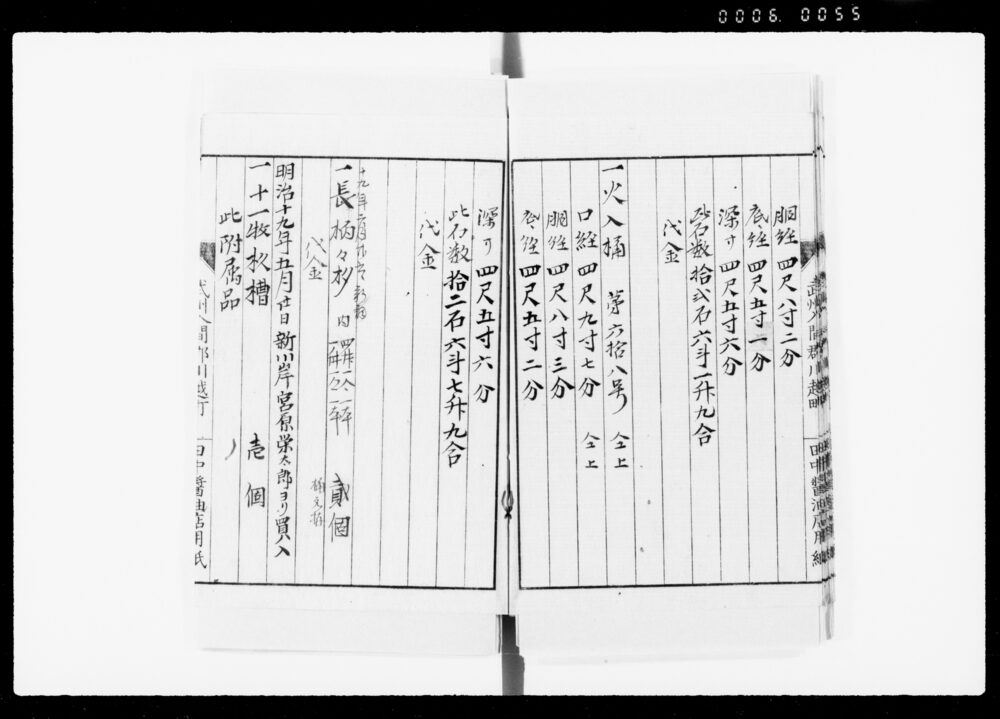 0006.0055
胴経 四尺八寸二分
底経 四尺五寸一分
深サ 四尺五寸六分
此石数 拾弐石六斗一升九合
代金
一火入桶 第六拾八号 仝上
口経 四尺九寸七分 仝上
胴経 四尺八寸三分
底経 四尺五寸二分
深サ 四尺五寸六分
此石数 拾二石六斗七升九合
代金
一長柄々杉 内 貳個
代金
明治十九年五月廿日 新川岸宮原栄太郎ヨリ買入
一十一枚杉槽 壱個
此附属品
武州入間郡川越町 田中醤油店用紙